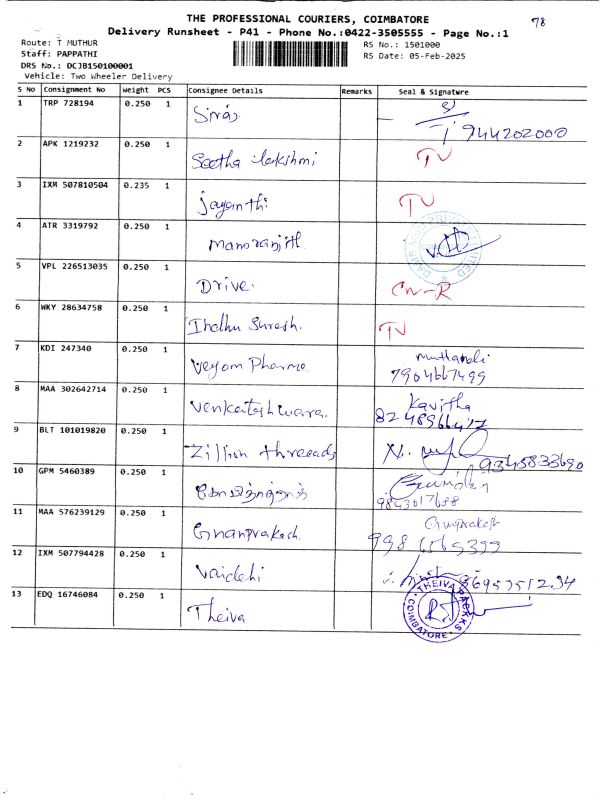 THE PROFESSIONAL COURIERS, COIMBATORE
78
Delivery Runsheet - P41 - Phone No.:0422-3505555 - Page No.:1
Route: T MUTHUR
RS No.: 1501000
Staff: PAPPATHI
RS Date: 05-Feb-2025
DRS No.: DCJB150100001
Vehicle: Two Wheeler Delivery
S No Consignment No Weight PCS Consignee Details Remarks Seal & Signature
1 TRP 728194 0.250 1 Siraj 944202000
2 APK 1219232 0.250 1 Seetha Lekshmi TV
3 IXM 507810504 0.235 1 Jayanthi TV
4 ATR 3319792 0.250 1 Manoranjith
5 VPL 226513035 0.250 1 Drive. CN-R
6 WKY 28634758 0.250 1 Indhu Suresh. TV
7 KDI 247340 0.250 1 Veyom Pharma
7904667499
8 MAA 302642714 0.250 1 Venkateshwara. Kavitha
9 BLT 101019820 0.250 1 Zillion threeads 9345833690
10 GPM 5460389 0.250 1
11 MAA 576239129 0.250 1 Gnanprakash.
12 IXM 507794428 0.250 1 Vaidehi
13 EDQ 16746084 0.250 1 Theiva THEIVA PACKKS COIMBATORE